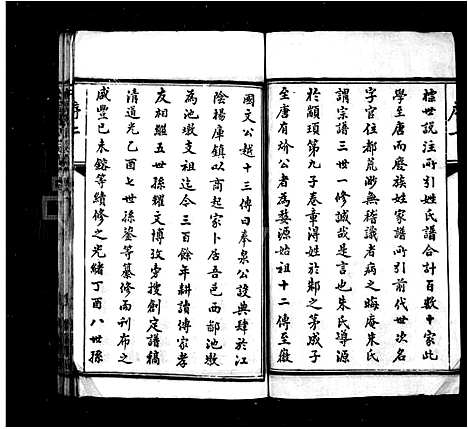 序一
檀世說注所引姓氏譜合計百數十家此
學至唐而廢族姓家譜所引前代世次名
字官位都荒渺無稽識者病之晦庵朱氏
謂宗譜三世一修誠哉是言也朱氏導源
於顓頊第九子春重得姓於邾之茅成子
至唐有齋公者為婺源始祖十二傳至徽
國文公越十三傳曰奉泉公設典肆於江
陰楊庫鎮以商起家卜居吾邑西鄙池墩
為池墩支祖迄今三百餘年耕讀傳家孝
友相繼五世孫耀文博攷旁搜創定譜稿
清道光乙酉七世孫鎣等纂修而刊布之
咸豐己未鎔等續修之光緒丁酉八世孫
序二